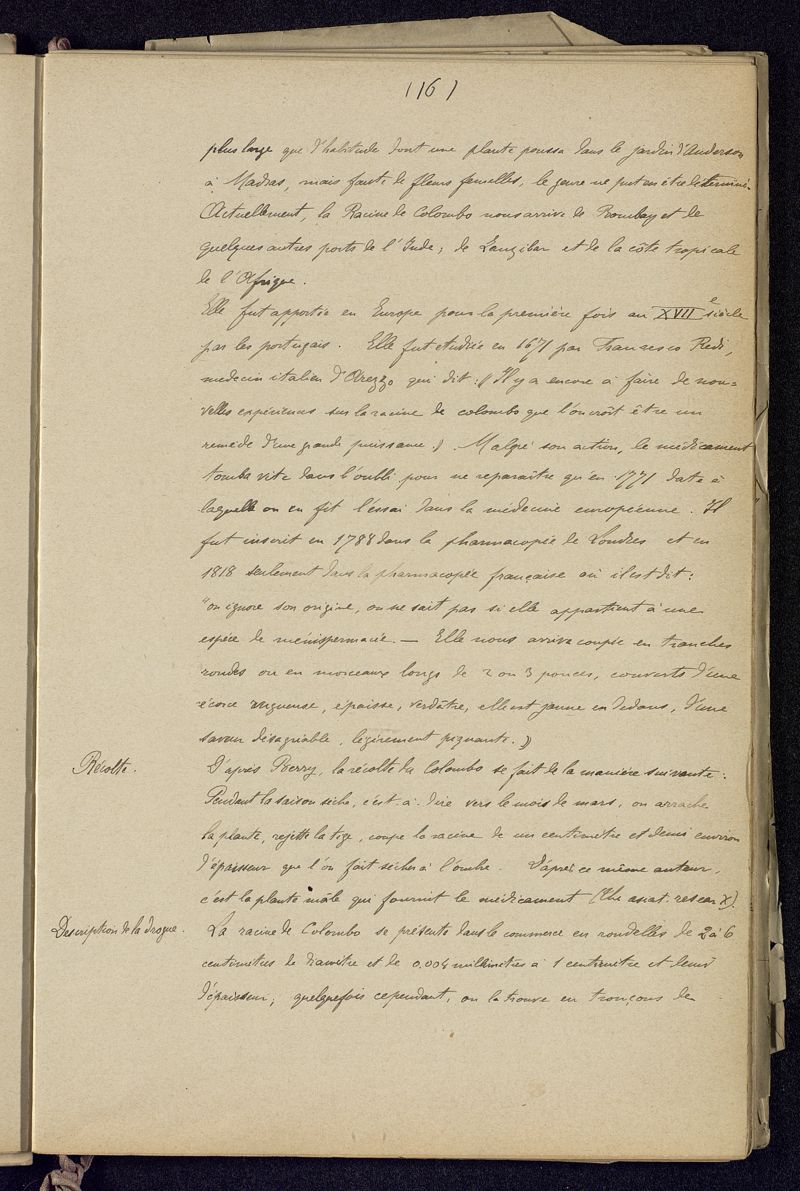 (16)
plus large que d'habitude dont une plante poussa dans le jardin d'Anderson
à Madras, mais faute de fleurs femelles, le genre ne put en être déterminé.
Actuellement, la Racine de Colombo nous arrive de Bombay et de
quelques autres ports de l'Inde; de Zanzibar et de la côte tropicale
de l'Afrique.
Elle fut apportée en Europe pour la première fois au XVIIe siècle
par les portugais. Elle fut étudiée en 1671 par Francesco Redi,
medecin italien d'Arezzo qui dit: (Il y a encore à faire de nou=
velles expériences sur la racine de colombo que l'on croit être un
remède d'une grande puissance.) Malgré son action, le médicament
tomba vite dans l'oubli pour ne reparaître qu'en 1771 date à
laquelle on en fit l'essai dans la médecine européenne. Il
fut inscrit en 1788 dans la pharmacopée de Londres et en
1818 seulement dans la pharmacopée française où il est dit:
"on ignore son origine, on ne sait pas si elle appartient à une
espèce de ménispermacée. — Elle nous arriva coupée en tranches
rondes ou en morceaux longs de 2 ou 3 pouces, couverts d'une
écorce rugueuse, épaisse, verdâtre, elle est jaune en dedans, d'une
saveur désagréable, légèrement piquante.)
Récolte.
D'après Berry, la récolte du Colombo se fait de la manière suivante:
Pendant la saison sèche, c'est-à-dire vers le mois de mars, on arrache
la plante, rejette la tige, coupe la racine de un centimètre et demi environ
d'épaisseur que l'on fait sécher à l'ombre. D'après ce même auteur,
c'est la plante mâle qui fournit le médicament (The asiat. resear. X).
Description de la drogue.
La racine de Colombo se présente dans le commerce en rondelles de 2 à 6
centimètres de diamètre et de 0,004 millimètres à 1 centimètre et demi
d'épaisseur; quelquefois cependant, on la trouve en tronçons de